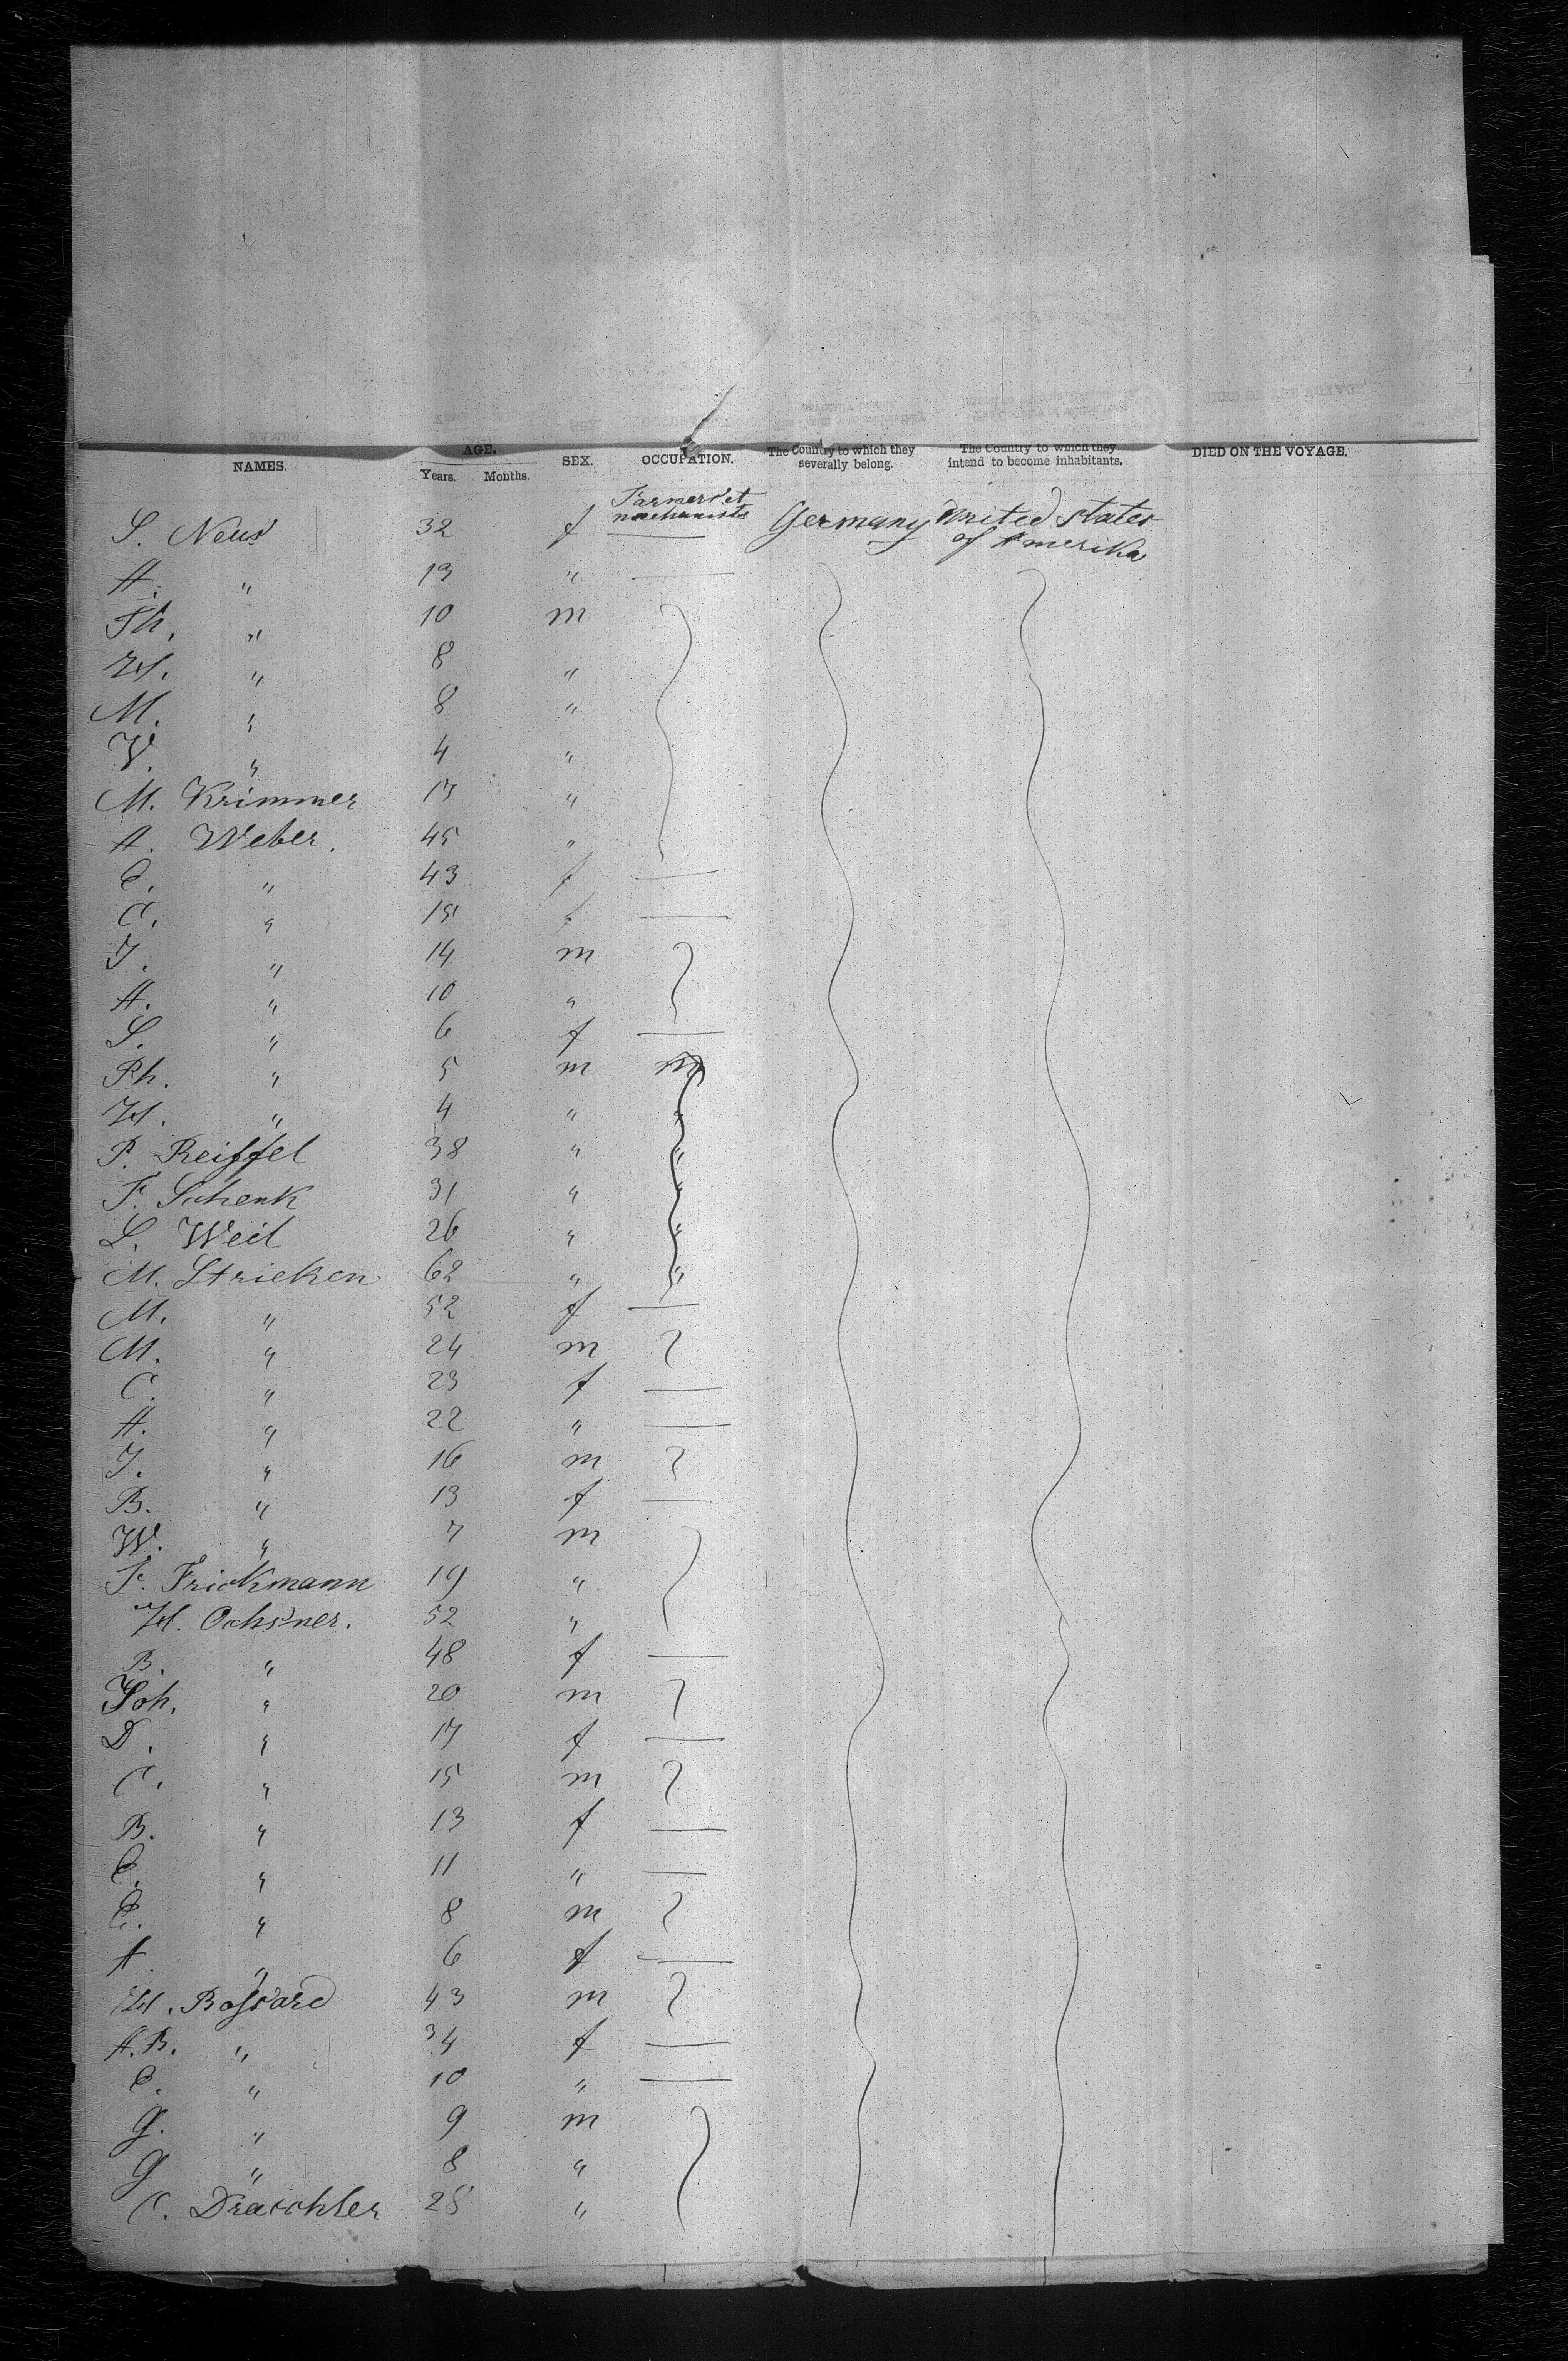 NAMES. AGE. Years. Months. SEX. OCCUPATION. The Country to which they severally belong. The Country to which they intend to become inhabitants. DIED ON THE VOYAGE.
S. Neus 32 f Farmers et mechanists Germany United States of Amerika
A. " 13 "
Th. " 10 m
H. " 8 "
M. " 8 "
V. " 4 "
M. Krimmer 17 "
A. Weber. 45 "
E. " 43 f
C. " 15 f
J. " 14 m
A. " 10 "
S. " 6 f
Ph. " 5 m m
H. " 4 " "
P. Reiffel 38 " "
F. Schenk 31 " "
L. Weil 26 " "
M. Strieken 62 " "
M. " 52 f
M. " 24 m
C. " 23 f
A. " 22 "
J. " 16 m
B. " 13 f
W. " 7 m
F. Frickmann 19 "
H. Ochsner. 52 "
B. " 48 f
Joh. " 20 m
D. " 17 f
C. " 15 m
B. " 13 f
E. " 11 "
E. " 8 m
A. " 6 f
H. Bossard 43 m
A.B. " 34 f
E. " 10 "
G. " 9 m
G " 8 "
C. Draechler 28 "